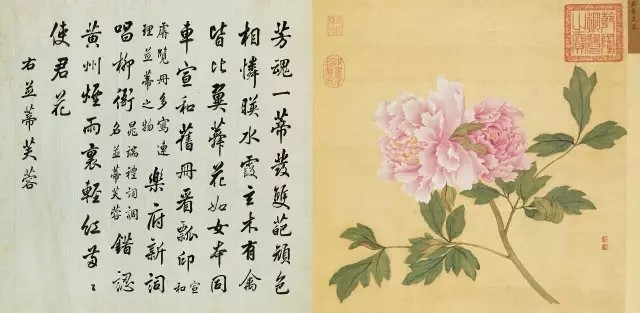 芳魂一蒂發雙葩頳色
相憐暎水霞立木有禽
皆比翼蕣花如女本同
車宣和舊冊看瓢印宣和
睿覽冊多寫連
理並蒂之物
樂府新詞
唱柳衙
晁端禮詞調
名並蒂芙蓉
錯認
黃州煙雨裏輕紅
使君花
右並蒂芙蓉